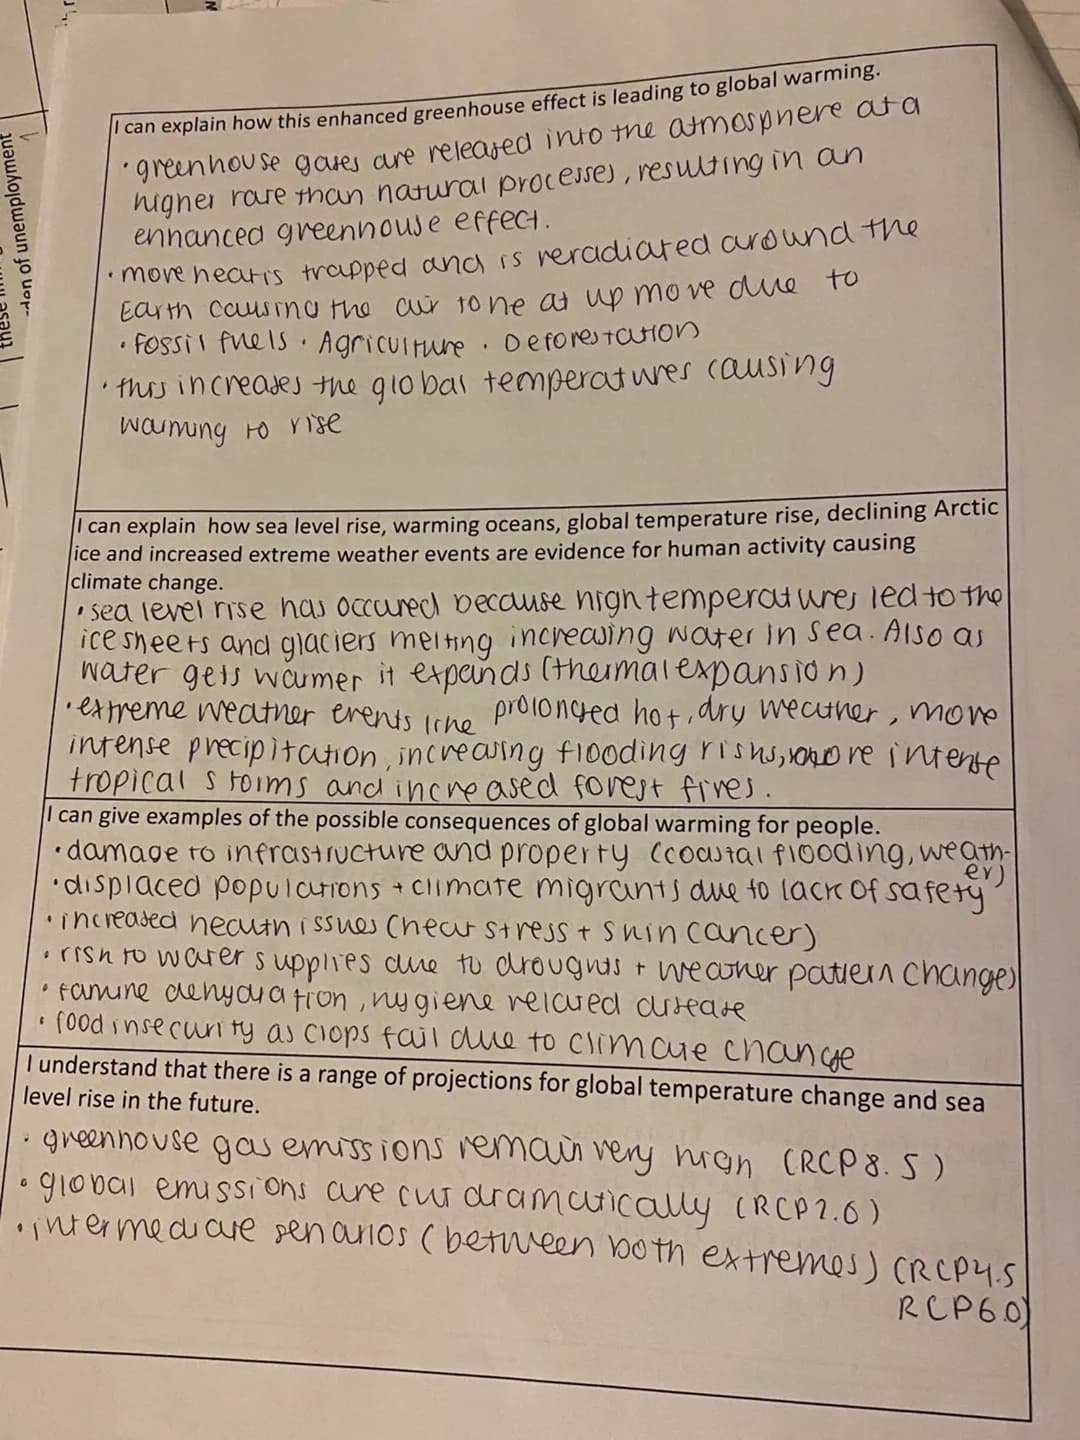 these
ion of unemployment
I can explain how this enhanced greenhouse effect is leading to global warming.
• greenhouse gases are released into the atmosphere at a
higher rate than natural processes, resulting in an
enhanced greenhouse effect.
• more heat is trapped and is reradiated around the
Earth causing the air to heat up more due to
• fossil fuels • Agriculture • Deforestation
• this increases the global temperatures causing
warming to rise
I can explain how sea level rise, warming oceans, global temperature rise, declining Arctic
ice and increased extreme weather events are evidence for human activity causing
climate change.
• sea level rise has occured because high temperatures led to the
ice sheets and glaciers melting increasing water in sea. Also as
water gets warmer it expands (thermal expansion)
• extreme weather events like prolonged hot, dry weather, more
intense precipitation, increasing flooding risks, more intense
tropical storms and increased forest fires.
I can give examples of the possible consequences of global warming for people.
• damage to infrastructure and property (coastal flooding, weath-
er)
• displaced populations + climate migrants due to lack of safety
• increased health issues (heat stress + skin cancer)
• risk to water supplies due to droughts + weather pattern changes
• famine dehydration, hygiene related disease
• food insecurity as crops fail due to climate change
I understand that there is a range of projections for global temperature change and sea
level rise in the future.
• greenhouse gas emissions remain very high (RCP8.5)
• global emissions are cut dramatically (RCP2.6)
• intermediate senarios (between both extremes) (RCP4.5
RCP6.0)